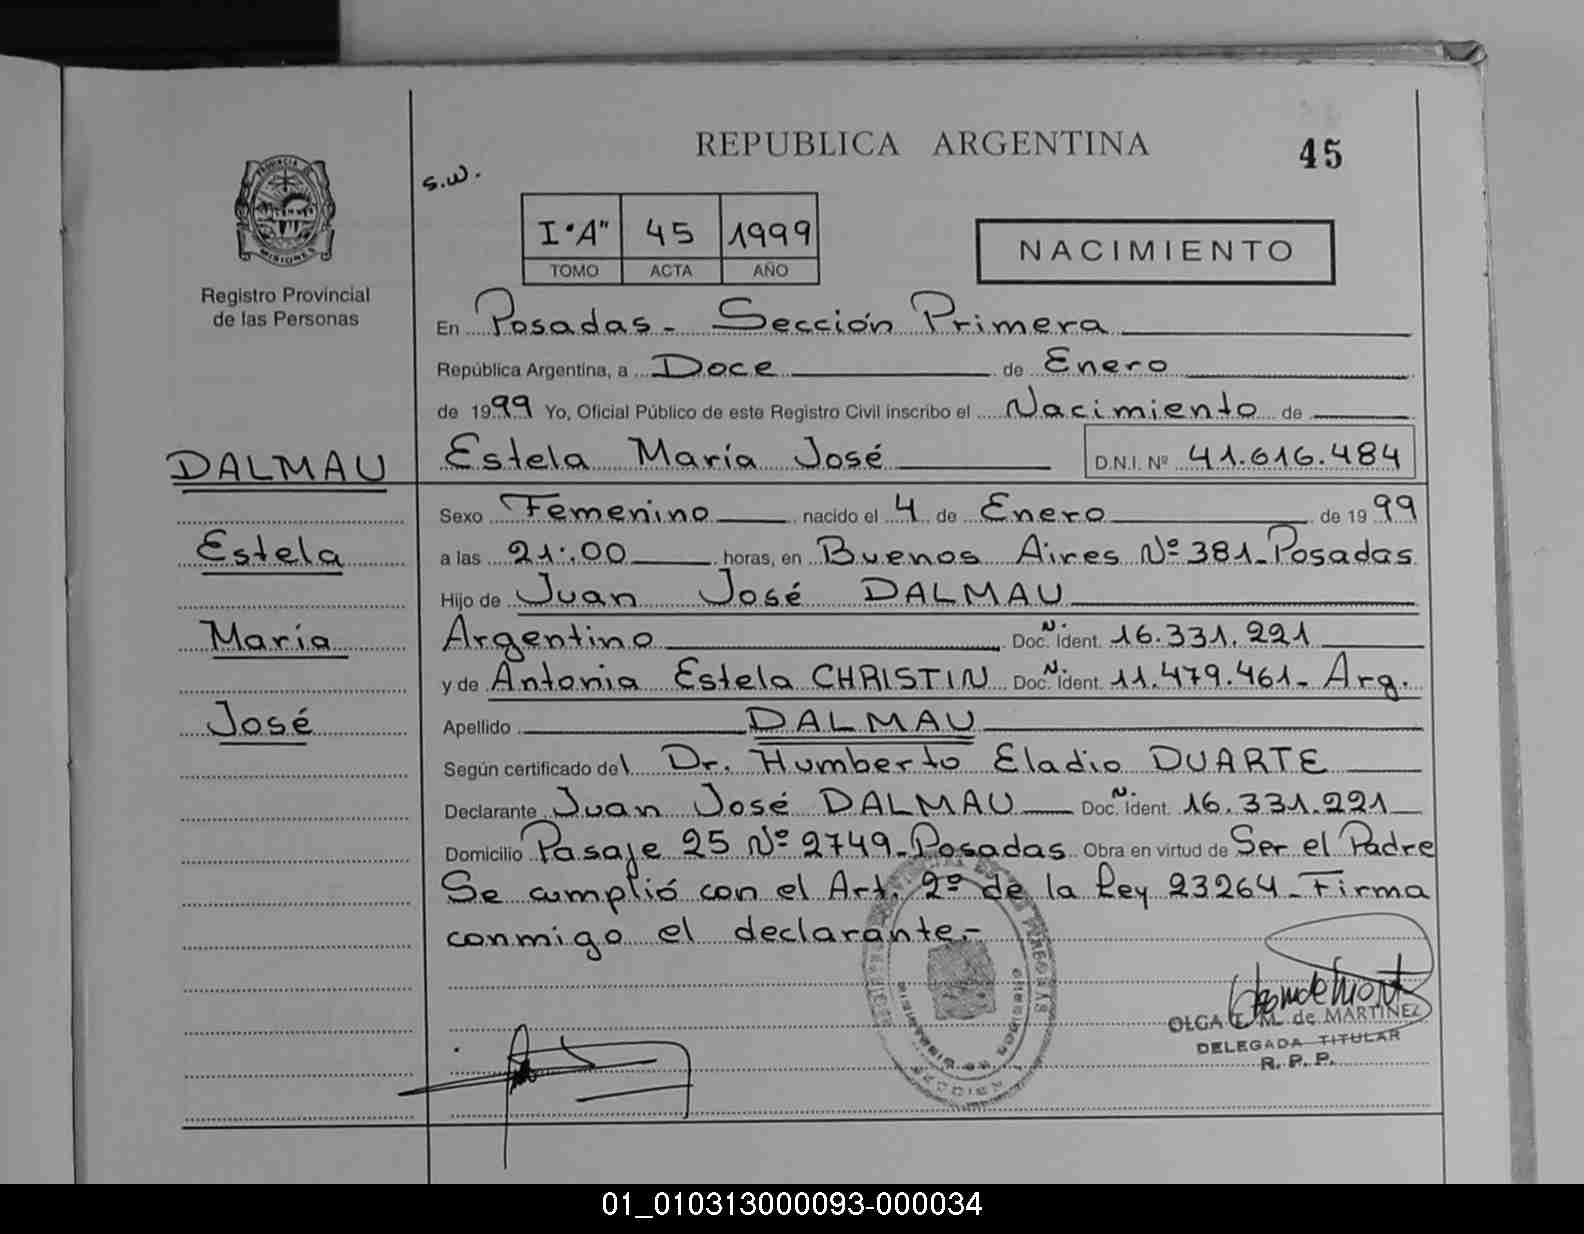 REPUBLICA ARGENTINA
45
s.w.
I "A" 45 1999
TOMO ACTA AÑO
NACIMIENTO
PROVINCIA
MISIONES
Registro Provincial
de las Personas
En Posadas - Sección Primera
República Argentina, a Doce de Enero
de 1999 Yo, Oficial Público de este Registro Civil inscribo el Nacimiento de
DALMAU
Estela María José D.N.I. Nº 41.616.484
Sexo Femenino nacido el 4 de Enero de 1999
Estela
a las 21:00 horas, en Buenos Aires Nº 381-Posadas
Hijo de Juan José DALMAU
María
Argentino Doc. N. Ident. 16.331.221
y de Antonia Estela CHRISTIN Doc. N. Ident. 11.479.461- Arg.
José
Apellido DALMAU
Según certificado del Dr. Humberto Eladio DUARTE
Declarante Juan José DALMAU Doc. N. Ident. 16.331.221
Domicilio Pasaje 25 Nº 2749-Posadas Obra en virtud de Ser el Padre
Se cumplió con el Art. 2º de la Ley 23264-Firma
conmigo el declarante.-
OLGA T. M. de MARTINEZ
DELEGADA TITULAR
R. P. P.
01_010313000093-000034